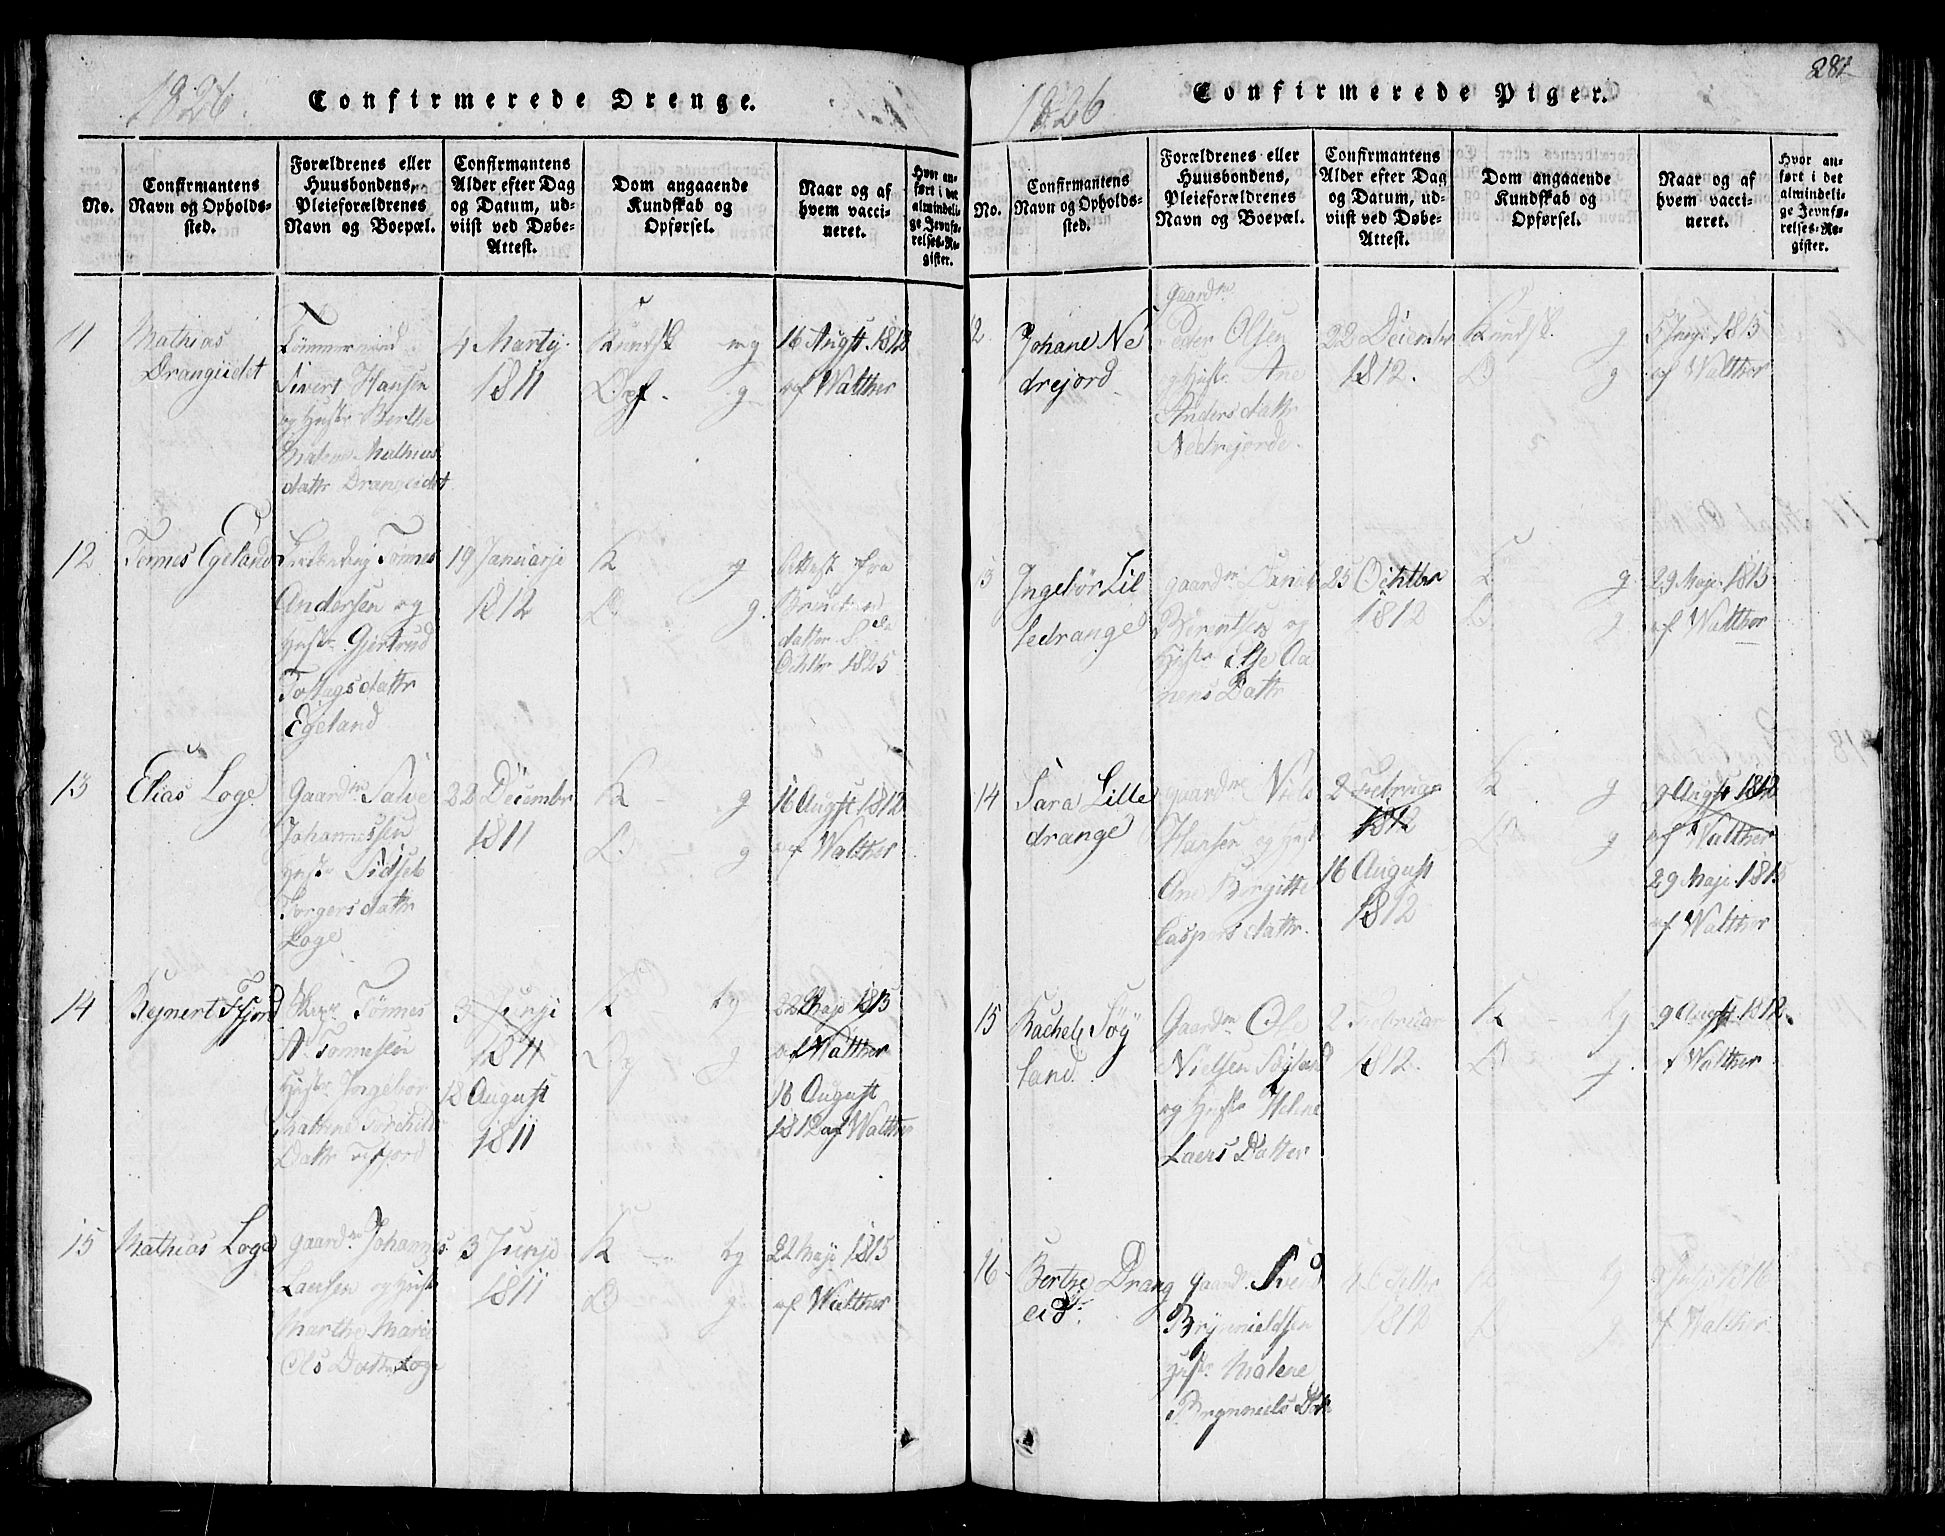 1826
Confirmerede Drenge.
No.
Confirmantens
Navn og Opholds-
sted.
Forældrenes eller
Huusbondens,
Pleieforældrenes
Navn og Boepæl.
Confirmantens
Alder efter Dag
og Datum, ud-
viist ved Døbe-
Attest.
Dom angaaende
Kundskab og
Opførsel.
Naar og af
hvem vacci-
neret.
Hvor an-
ført i det
almindeli-
ge Jevnfø-
relses-Re-
gister.
11
Mathias
Drangeidet
Tømmermd
Sivert Hansen
og Hustr Berthe
Malene Mathias
dattr Drangeidet
4 Martij
1811
Kundsk mg
Opf. g
16 Augst 1812
af Walther
12
Tonnes Egeland
Tønnes
Andersen og
Hustr Gjertrud
Toftagsdattr
Egeland
19 Januarji
1812
K g
O g
Attest fra
datter
Octbr 1825
13
Elias Loge
Gaardm Salve
Johannessen
Hustr Sidsel
Torgersdattr
Loge
22 Decembr
1811
K g
O g
16 Augst 1812
af Walther
14
Rejnert Fjord
Tønnes
Tonnesen
Hustr Ingebor
Kattrine Torchild
Dattr Fjord
3 Junji
1811
18 August
1811
K tg
O g
22 Maji 1815
af Walther
16 August
1812 af Walther
15
Mathias Loge
gaardm Johannes
Laursen og Hustr
Marthe Marie
Ols Datter Loge
3 Junji
1811
K tg
O g
22 Maji 1815
af Walther
1826
Confirmerede Piger.
281
No.
Confirmantens
Navn og Opholds-
sted.
Forældrenes eller
Huusbondens,
Pleieforældrenes
Navn og Boepæl.
Confirmantens
Alder efter Dag
og Datum, ud-
viist ved Døbe-
Attest.
Dom angaaende
Kundskab og
Opførsel.
Naar og af
hvem vacci-
neret.
Hvor an-
ført i det
almindeli-
ge Jevnfø-
relses-Re-
gister.
2
Johane Ne
drejord
gaardm
Peder Olsen
og Hustr Ane
Andersdattr
Nedrejorde
22 Decembr
1812.
Kundsk. g
O g
af Walther
3
Ingebör Lil
ledrange
gaardm Daniel
Berentsen og
Hustr Else Aa
nensDattr
25 Octbr
1812
K g
O g
29 Maji 1815
af Walther
14
Sara Lille
drange
gaardm Niels
Hansen og Hustr
Ane Birgitte
Caspersdattr.
2 Februar
1812
16 August
1812
K g
O g
9 Augst 1812
af Walther
29 Maji 1813
af Walther
15
Rachel Föy
land
Gaardm Ole
Nielsen Föyland
og Hustr Helene
Laers Datter
2 Februar
1812.
K tg
O g
9 Augst 1812.
af Walther
16
Berthe Drang
eid.
gaardm Svend
Brynnieldsen
Hustr Malene
Brynnields Dtr
1812
K tg
O g
1816
af Walther